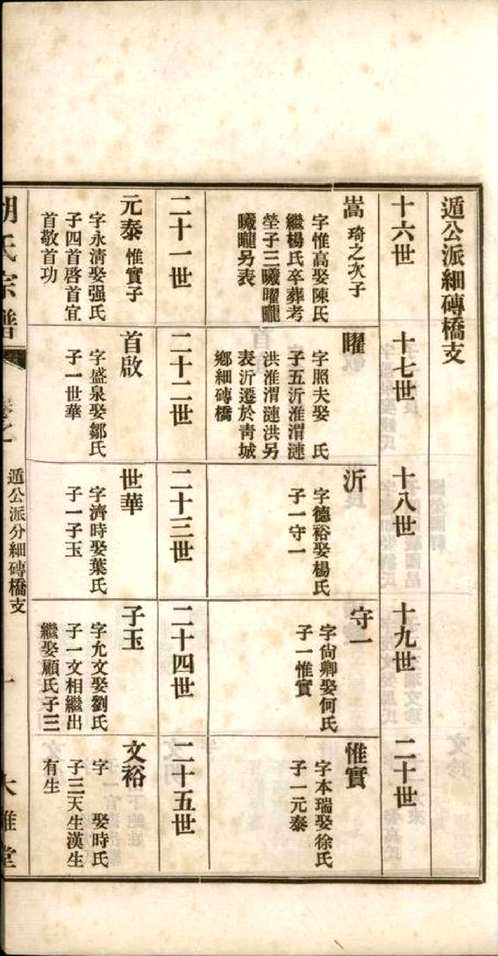 遁公派細磚橋支
十六世
十七世
十八世
十九世
二十世
嵩 琦之次子
字惟高娶陳氏
繼楊氏卒葬考
塋子三曦曜矓
曦矓另表
曜
字照夫娶　氏
子五沂淮渭漣
洪淮渭漣洪另
表沂遷於靑城
鄉細磚橋
沂
字德裕娶楊氏
子一守一
守一
字尙卿娶何氏
子一惟實
惟實
字本瑞娶徐氏
子一元泰
二十一世
二十二世
二十三世
二十四世
二十五世
元泰 惟實子
字永清娶强氏
子四首啓首宜
首敬首功
首啟
字盛泉娶鄒氏
子一世華
世華
字濟時娶葉氏
子一子玉
子玉
字允文娶劉氏
子一文相繼出
繼娶顧氏子三
文裕
字　娶時氏
子三天生漢生
有生
胡氏宗譜
卷之
遁公派分細磚橋支
大雅堂